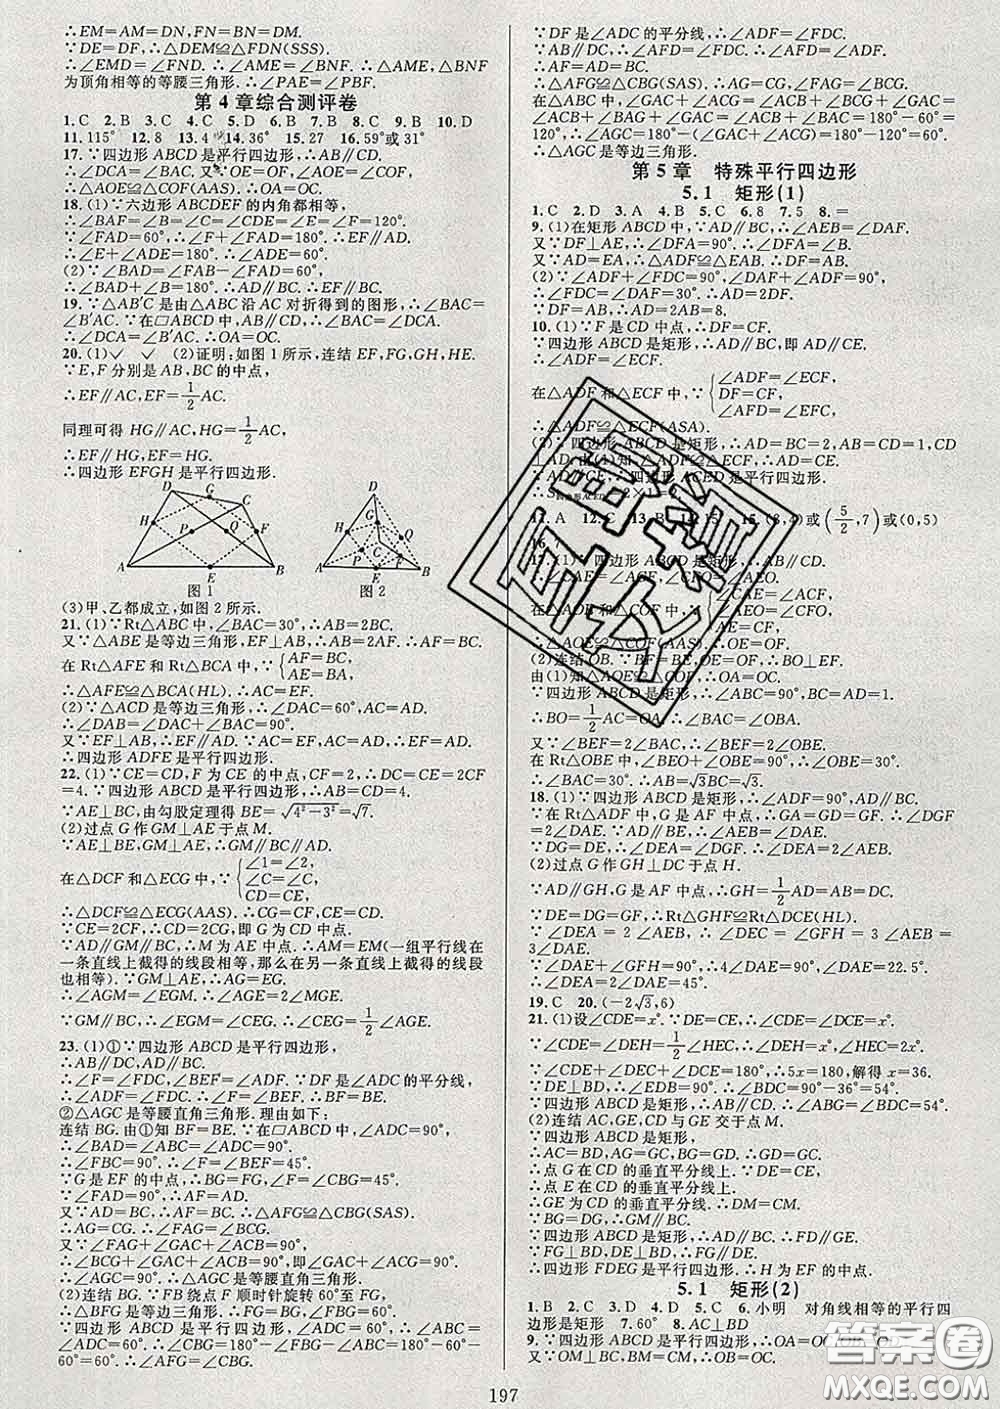 ∴EM=AM=DN,FN=BN=DM.
∵DE=DF,∴△DEM≌△FDN(SSS).
∴∠EMD=∠FND.∴∠AME=∠BNF.∵△AME,△BNF
为顶角相等的等腰三角形.∴∠PAE=∠PBF.
第4章综合测评卷
1.C 2.B 3.C 4.C 5.D 6.B 7.B 8.C 9.B 10.D
11.115° 12.8 13.4 14.36° 15.27 16.59°或31°
17.∵四边形ABCD是平行四边形,∴AB∥CD.
∴∠DCA=∠BAC.又∵OE=OF,∠AOE=∠COF,
∴△AOE≌△COF(AAS).∴OA=OC.
18.(1)∵六边形ABCDEF的内角都相等,
∴∠BAF=∠B=∠C=∠CDE=∠E=∠F=120°.
∵∠FAD=60°,∴∠F+∠FAD=180°.∴EF∥AD.
∴∠E+∠ADE=180°.∴∠ADE=60°.
(2)∵∠BAD=∠FAB-∠FAD=60°,
∴∠BAD+∠B=180°.∴AD∥BC.∴EF∥BC.
19.∵△AB′C是由△ABC沿AC对折得到的图形,∴∠BAC=
∠B′AC.∵在□ABCD中,AB∥CD,∴∠BAC=∠DCA.
∴∠DCA=∠B′AC.∴OA=OC.
20.(1)✓ ✓ (2)证明:如图1所示,连结EF,FG,GH,HE.
∵E,F分别是AB,BC的中点,
∴EF∥AC,EF=1/2AC.
同理可得HG∥AC,HG=1/2AC,
∴EF∥HG,EF=HG.
∴四边形EFGH是平行四边形.
D G C H P Q F A E B
图1
D G H Q P C F A E B
图2
(3)甲、乙都成立,如图2所示.
21.(1)∵Rt△ABC中,∠BAC=30°,∴AB=2BC.
又∵△ABE是等边三角形,EF⊥AB,∴AB=2AF.∴AF=BC.
在Rt△AFE和Rt△BCA中,∵{AF=BC, AE=BA,
∴△AFE≌△BCA(HL).∴AC=EF.
(2)∵△ACD是等边三角形,∴∠DAC=60°,AC=AD.
∴∠DAB=∠DAC+∠BAC=90°.
又∵EF⊥AB,∴EF∥AD.∵AC=EF,AC=AD,∴EF=AD.
∴四边形ADFE是平行四边形.
22.(1)∵CE=CD,F为CE的中点,CF=2,∴DC=CE=2CF
=4.∵四边形ABCD是平行四边形,∴AB=CD=4.
∵AE⊥BC,∴由勾股定理得BE=√(4²-3²)=√7.
(2)过点G作GM⊥AE于点M.
∵AE⊥BE,GM⊥AE,∴GM∥BC∥AD.
在△DCF和△ECG中,∵{∠1=∠2, ∠C=∠C, CD=CE,
∴△DCF≌△ECG(AAS).∴CG=CF,CE=CD.
∵CE=2CF,∴CD=2CG,即G为CD中点.
∵AD∥GM∥BC,∴M为AE中点.∴AM=EM(一组平行线在
一条直线上截得的线段相等,那么在另一条直线上截得的线段
也相等).∵GM⊥AE,∴AG=EG.
∴∠AGM=∠EGM.∴∠AGE=2∠MGE.
∵GM∥BC,∴∠EGM=∠CEG.∴∠CEG=1/2∠AGE.
23.(1)①∵四边形ABCD是平行四边形,
∴AB∥DC,AD∥BC.
∴∠F=∠FDC,∠BEF=∠ADF.∵DF是∠ADC的平分线,
∴∠ADF=∠FDC.∴∠F=∠BEF.∴BF=BE.
②△AGC是等腰直角三角形.理由如下:
连结BG.由①知BF=BE.∵在□ABCD中,∠ADC=90°,
∴∠BAD=∠ABC=∠ADC=90°.
∴∠FBC=90°.∴∠F=∠BEF=45°.
∵G是EF的中点,∴BG=FG,∠F=∠CBG=45°.
∵∠FAD=90°,∴AF=AD.
又∵AD=BC,∴AF=BC.∴△AFG≌△CBG(SAS).
∴AG=CG.∴∠FAG=∠BCG.
又∵∠FAG+∠GAC+∠ACB=90°,
∴∠BCG+∠GAC+∠ACB=90°,即∠GAC+∠ACG=90°.
∴∠AGC=90°.∴△AGC是等腰直角三角形.
(2)连结BG.∵FB绕点F顺时针旋转60°至FG,
∴△BFG是等边三角形.∴FG=BG,∠FBG=60°.
又∵四边形ABCD是平行四边形,∠ADC=60°.
∴∠ABC=∠ADC=60°.∴∠CBG=180°-∠FBG-∠ABC=180°-60°-
60°=60°.∴∠AFG=∠CBG.
∵DF是∠ADC的平分线,∴∠ADF=∠FDC.
∵AB∥DC,∴∠AFD=∠FDC.∴∠AFD=∠ADF.
∴AF=AD=BC.
∴△AFG≌△CBG(SAS).∴AG=CG,∠FAG=∠BCG.
在△ABC中,∠GAC+∠ACG=∠ACB+∠BCG+∠GAC=
∠ACB+∠BAG+∠GAC=∠ACB+∠BAC=180°-60°=
120°,∴∠AGC=180°-(∠GAC+∠ACG)=180°-120°=60°.
∴△AGC是等边三角形.
第5章 特殊平行四边形
5.1 矩形(1)
1.C 2.D 3.A 4.B 5.C 6.8 7.5 8.=
9.(1)在矩形ABCD中,∵AD∥BC,∴∠AEB=∠DAF.
又∵DF⊥AE,∴∠DFA=90°.∴∠DFA=∠B.
又∵AD=EA,∴△ADF≌△EAB.∴DF=AB.
(2)∵∠ADF+∠FDC=90°,∠DAF+∠ADF=90°,
∴∠FDC=∠DAF=30°.∴AD=2DF.
∵DF=AB,∴AD=2AB=8.
10.(1)∵F是CD中点,∴DF=CF.
∵四边形ABCD是矩形,∴AD∥BC,即AD∥CE.
∴∠ADF=∠ECF.
在△ADF和△ECF中,∵{∠ADF=∠ECF, DF=CF, ∠AFD=∠EFC,
∴△ADF≌△ECF(ASA).
(2)∵四边形ABCD是矩形,∴AD=BC=2,AB=CD
⊥AD.由(1)知,△ADF≌△ECF,∴AD=CE.
∵AD∥CE,∴四边形ACED是平行四边形.
11.A 12.C 13.B 15.(8,4)或(5/2,7)或(0,5)
17.(1)∵四边形ABCD是矩形,
(2)连结OB.∵BF=BE,OE=OF,∴BO⊥EF.
由(1)知△AOE≌△COF,∴OA=OC.
∵四边形ABCD是矩形,∴∠ABC=90°,BC=AD=1.
∴BO=1/2AC=OA.∴∠BAC=∠OBA.
又∵∠BEF=2∠BAC,∴∠BEF=2∠OBE.
在Rt△OBE中,∠BEO+∠OBE=90°,∴∠OBE=30°.
∴∠BAC=30°.∴AB=√3BC=√3.
18.(1)∵四边形ABCD是矩形,∴∠ADF=90°,AD∥BC.
∵在Rt△ADF中,G是AF中点,∴GA=GD=GF.∴∠DGF
=2∠DAE.∵AD∥BE,∴∠AEB=∠DAE.
∵DG=DE,∴∠DEA=∠DGF.∴∠DEA=2∠AEB.
(2)过点G作GH⊥DC于点H.
∵AD∥GH,G是AF中点,∴GH=1/2AD=AB=DC.
∵DE=DG=GF,∴Rt△GHF≌Rt△DCE(HL).
∵∠DEA=2∠AEB,∴∠DEC=∠GFH=3∠AEB=
3∠DAE.
∵∠DAE+∠GFH=90°,∴4∠DAE=90°,∠DAE=22.5°.
∴∠DEA=2∠DAE=45°.
19.C 20.(-2√3,6)
21.(1)设∠CDE=x°.∵DE=CE,∴∠CDE=∠DCE=x°.
∵∠CDE=∠DEH=1/2∠HEC,∴∠DEH=x°,∠HEC=2x°.
∵∠CDE+∠DEC+∠DCE=180°,∴5x=180,解得x=36.
∵DE⊥BD,∴∠BDE=90°,∴∠BDC=90°-36°=54°.
∵四边形ABCD是矩形,∴AD∥BC.∴∠ABG=∠BDC=54°.
(2)连结AC,GE,CD与GE交于点M.
∵四边形ABCD是矩形,
∴AC=BD,AG=GC,BG=GD.∴GD=GC.
∴点G在CD的垂直平分线上.∵DE=CE,
∴点E在CD的垂直平分线上.
∴GE为CD的垂直平分线.∴DM=CM.
∵BG=DG,∴GM∥BC.
∵四边形ABCD是矩形,∴AD∥BC.∴AD∥GE,即FD∥GE.
∵FG⊥BD,DE⊥BD,∴FG∥DE.
∴四边形FDEG是平行四边形.∴H为EF的中点.
5.1 矩形(2)
1.B 2.C 3.D 4.D 5.C 6.小明 对角线相等的平行四
边形是矩形 7.60° 8.AC⊥BD
9.∵四边形ABCD是平行四边形,∴OA=OC,OB=OD.
又∵OM⊥BC,BM=CM,∴OB=OC.
197
答案圈
MXQE.COM